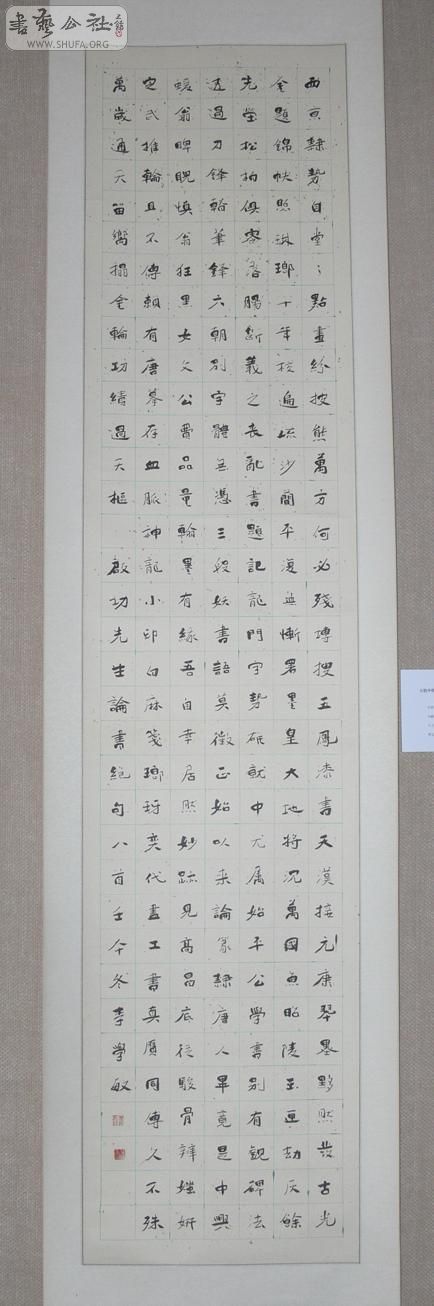 書藝公社
WWW.SHUFA.ORG
西京隸勢自堂々點畫紛披態萬方何必殘磚搜五鳳漆書天漢接元康翠墨黟然發古光
金題錦帙照琳瑯十年校遍流沙簡平復無慚署墨皇大地將沉萬國魚昭陵玉匣劫灰餘
先塋松柏俱零落腸斷羲之喪亂書題記龍門字勢雄就中尤屬始平公學書別有觀碑法
透過刀鋒看筆鋒六朝別字體無憑三段妖書語莫徵正始以來論篆隸唐人畢竟是中興
蝯翁睥睨慎翁狂黑女文公費品量翰墨有緣吾自幸居然妙跡見高昌底從駿骨辨媸妍
定武椎輪且不傳賴有唐摹存血脈神龍小印白麻箋瑯玡奕代盡工書真贗同傳久不殊
萬歲通天留響搨金輪功績過天樞 啟功先生論書絕句八首壬午冬李學敏